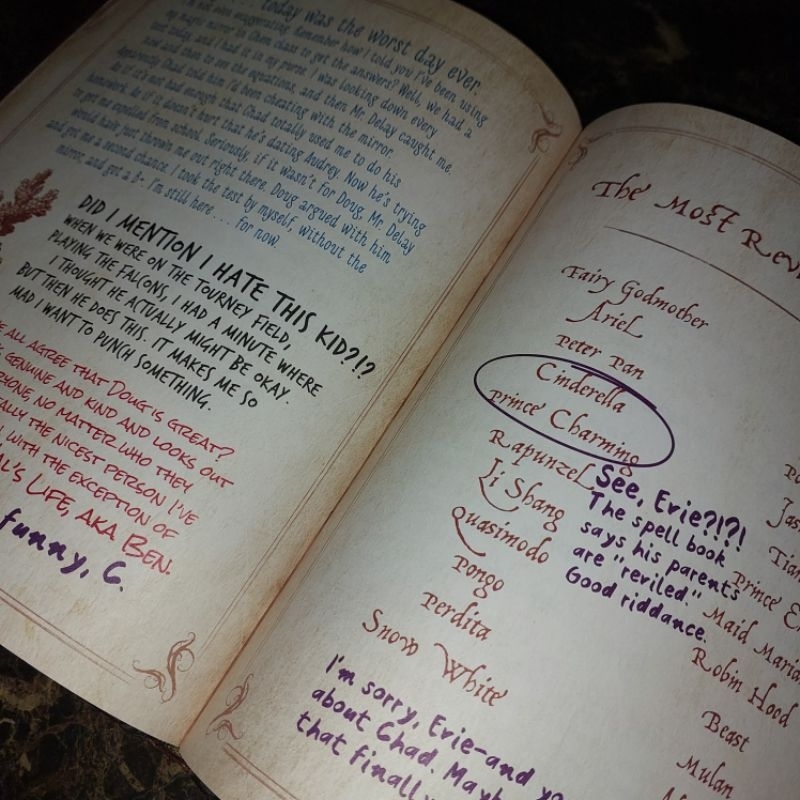 . . . today was the worst day ever.
I'm not even exaggerating. Remember how I told you I've been using
my magic mirror in Chem class to get the answers? Well, we had a
test today, and I had it in my purse. I was looking down every
now and then to see the equations, and then Mr. Delay caught me.
Apparently Chad told him I'd been cheating with the mirror.
As if it's not bad enough that Chad totally used me to do his
homework. As if it doesn't hurt that he's dating Audrey. Now he's trying
to get me expelled from school. Seriously, if it wasn't for Doug, Mr. Delay
would have just thrown me out right there. Doug argued with him
and got me a second chance. I took the test by myself, without the
mirror, and got a B-. I'm still here . . . for now.
DID I MENTION I HATE THIS KID?!?
WHEN WE WERE ON THE TOURNEY FIELD,
PLAYING THE FALCONS, I HAD A MINUTE WHERE
I THOUGHT HE ACTUALLY MIGHT BE OKAY.
BUT THEN HE DOES THIS. IT MAKES ME SO
MAD I WANT TO PUNCH SOMETHING.
ALL AGREE THAT DOUG IS GREAT?
GENUINE AND KIND AND LOOKS OUT
NO MATTER WHO THEY
THE NICEST PERSON I'VE
WITH THE EXCEPTION OF
LIFE, AKA BEN.
funny, C.
The Most
Fairy Godmother
Ariel
Peter Pan
Cinderella
Prince Charming
Rapunzel
Li Shang
Quasimodo
Pongo
Perdita
Snow White
See, Evie?!?!
The spell book
says his parents
are "reviled."
Good riddance.
Prince
Maid
Robin Hood
Beast
Mulan
I'm sorry, Evie—and
about Chad.
that finally